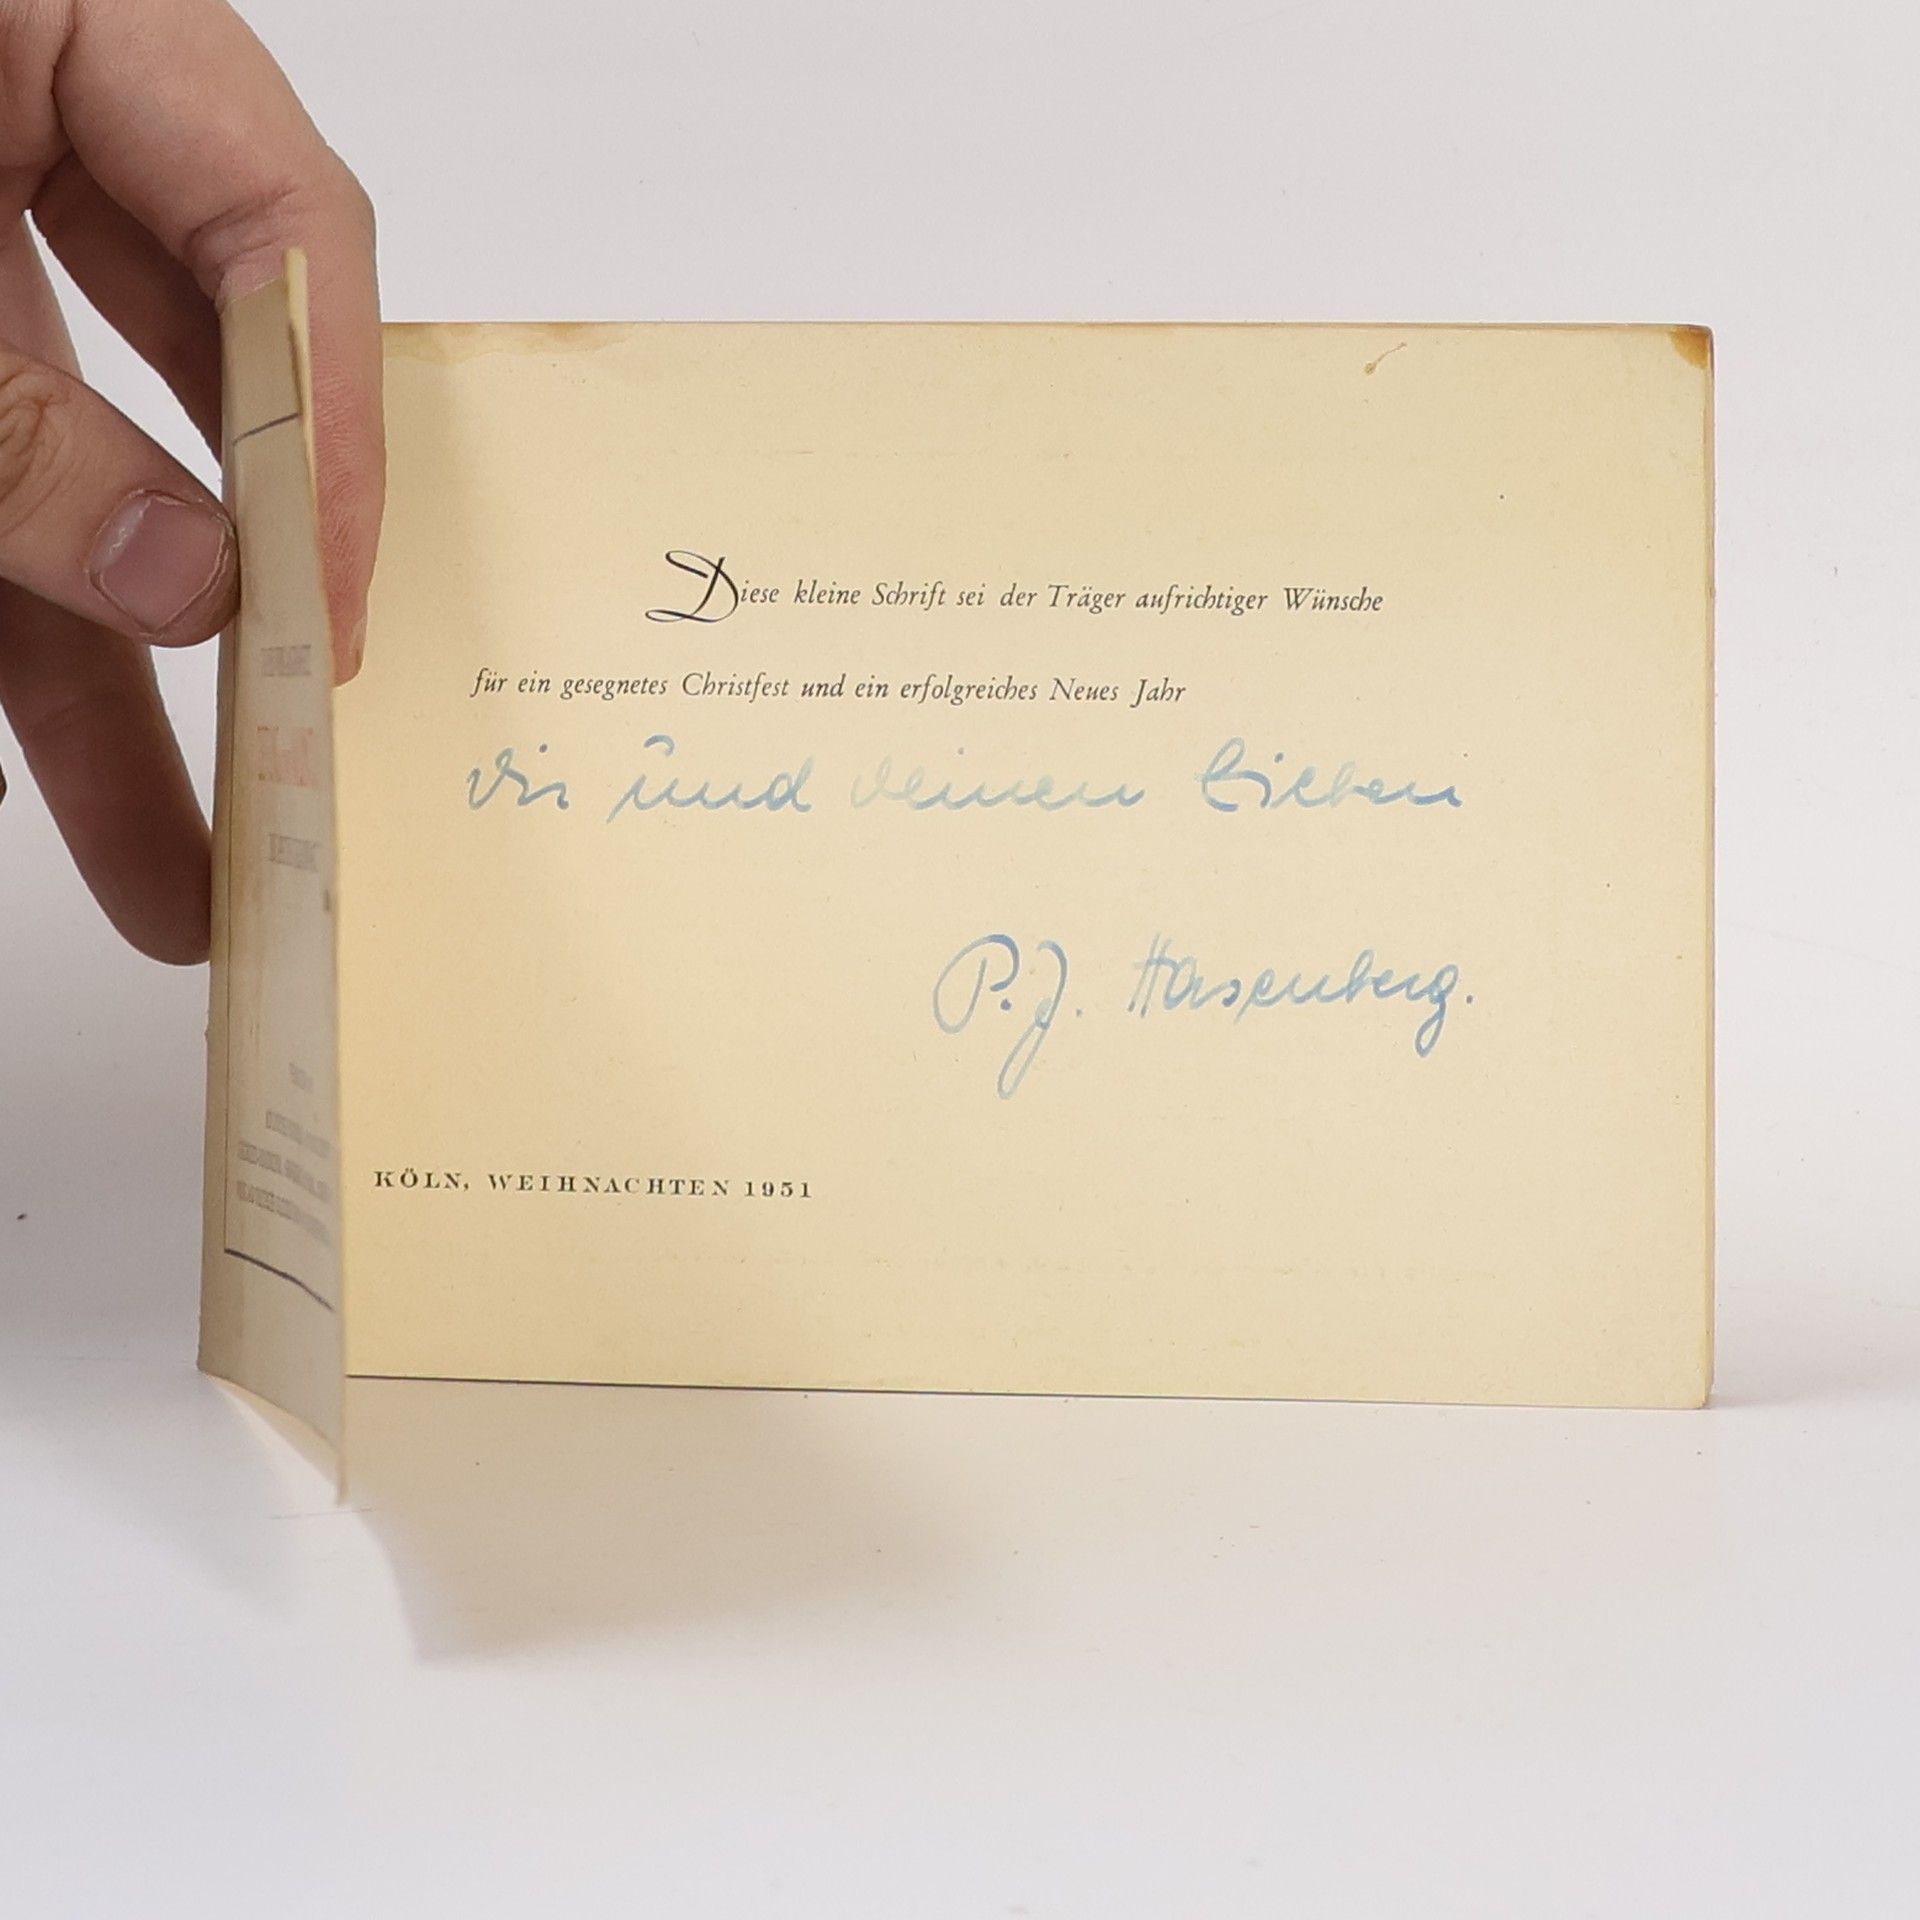 Diese kleine Schrift sei der Träger aufrichtiger Wünsche
für ein gesegnetes Christfest und ein erfolgreiches Neues Jahr
dir und deinen Lieben
P. J. Hasenberg.
KÖLN, WEIHNACHTEN 1951